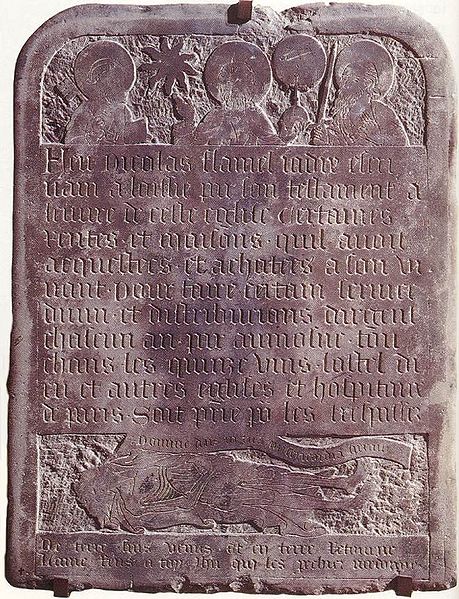 Feu nicolas flamel jadis escri
vain a laissie par son testament a
leuvre de ceste eglise Certaines
rentes et maisons quil avoit
acquestees et achetees a son vi
vant pour faire certain service
divin et distribucions dargent
chascun an par aumosne tou
chans les quinze vins lostel di
eu et autres eglises et hospitaux
a paris Soit prie po les trespassez
Domine deus
De terre suis venus et en terre retourne